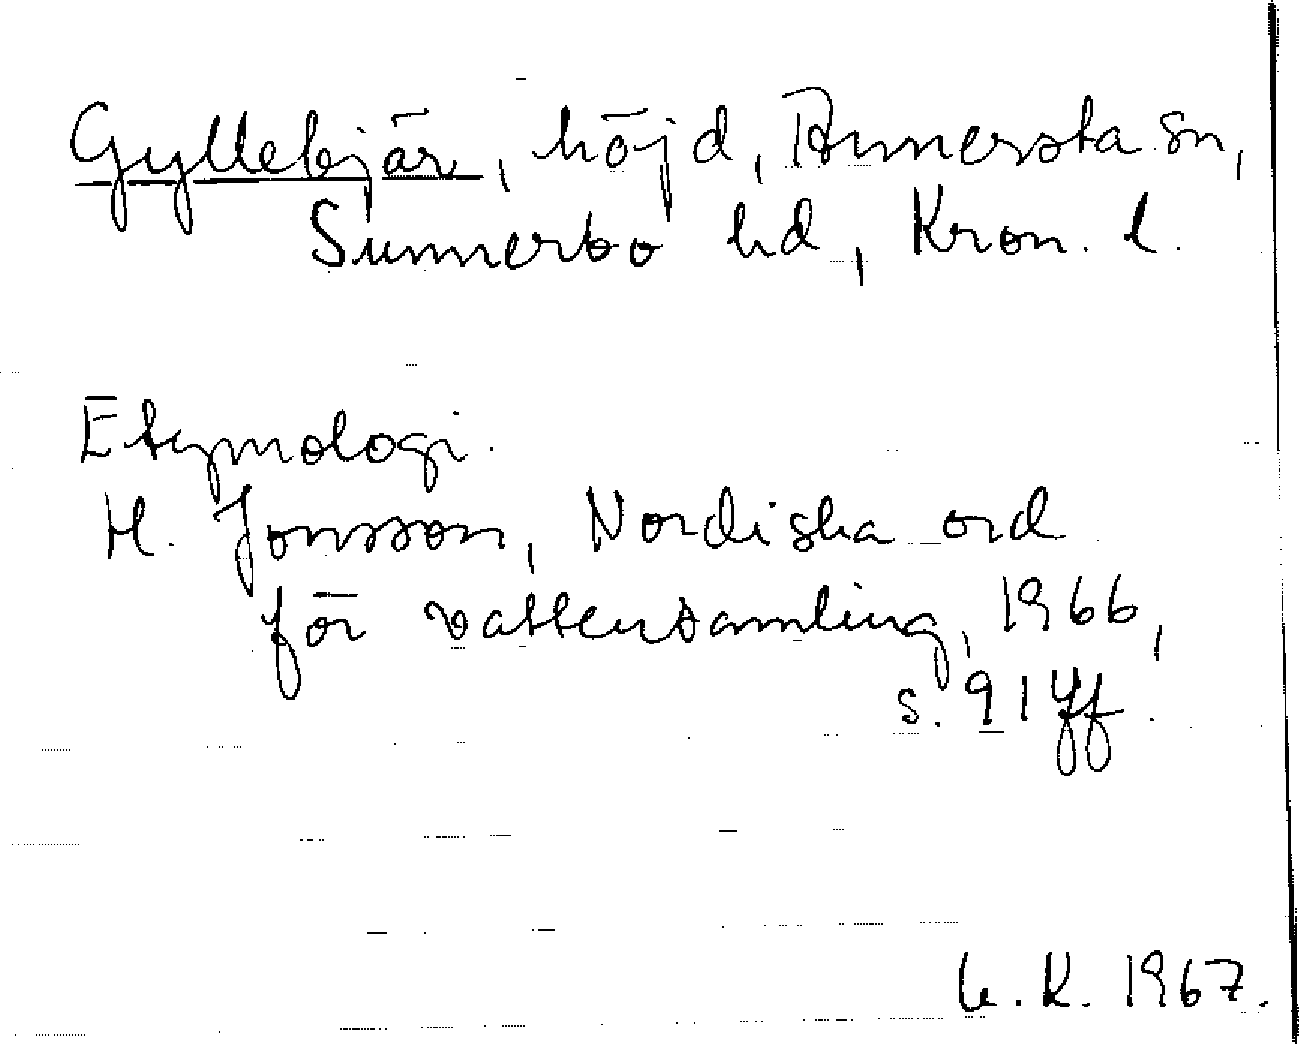 Gyllebjär, höjd, Annersta sn,
Sunnerbo hd, Kron. l.
Etymologi.
H. Jonsson, Nordiska ord
för vattensamling, 1966,
s. 91 ff.
K. 1967.